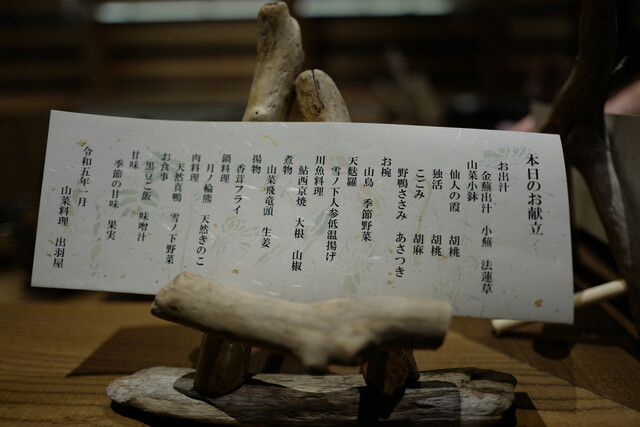 本日のお献立
お出汁
金蕪出汁 小蕪 法蓮草
山菜小鉢
仙人の霞 胡桃
独活 胡桃
こごみ 胡麻
野鴨ささみ あさつき
お椀
山鳥 季節野菜
天麩羅
雪ノ下人参低温揚げ
川魚料理
鮎西京焼 大根 山椒
煮物
山菜飛竜頭 生姜
揚物
香茸フライ
鍋料理
月ノ輪熊 天然きのこ
肉料理
天然真鴨 雪ノ下野菜
お食事
黒豆ご飯 味噌汁
甘味
季節の甘味 果実
令和五年一月
山菜料理 出羽屋